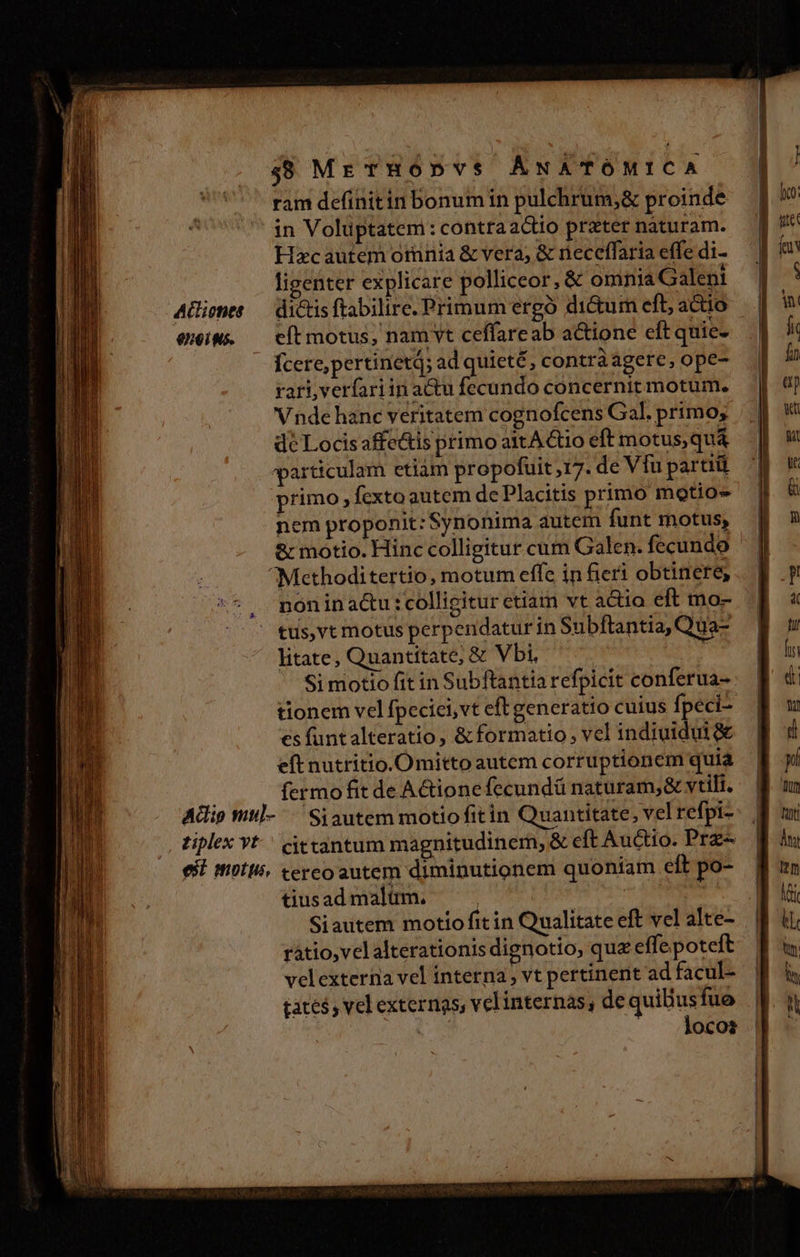 58 METHODVS ANATOMICA
ram definit in bonum in pulchrum, & proinde
in Voluptatem : contra actio præter naturam.
Hæc autem omnia & vera, & necessaria esse di-
ligenter explicare polliceor, & omnia Galeni
Actiones dictis stabilire. Primum ergò dictum est, actio
est motus, nam vt cessare ab actione est quie-
scere, pertinetq́; ad quietē, contrà agere, ope-
rari, versari in actu secundo concernit motum.
Vnde hanc veritatem cognoscens Gal. primo,
de Locis affectis primo ait Actio est motus, quā
particulam etiam proposuit ,17. de Vsu partiū
primo, sexto autem de Placitis primo motio-
nem proponit: Synonima autem sunt motus,
& motio. Hinc colligitur cum Galen. secundo
Methodi tertio, motum esse in fieri obtinere,
non in actu : colligitur etiam vt actio est mo-
tus, vt motus perpendatur in Substantia, Qua-
litate, Quantitate, & Vbi,
Si motio fit in Substantia respicit conserua-
tionem vel speciei, vt est generatio cuius speci-
es sunt alteratio, & formatio, vel indiuidui &
est nutritio. Omitto autem corruptionem quia
sermo fit de Actione secundū naturam, & vtili.
Actio mul- Si autem motio fit in Quantitate, vel respi-
tiplex vt cit tantum magnitudinem, & est Auctio. Præ-
est motus, tereo autem diminutionem quoniam est po-
tius ad malum.
Si autem motio fit in Qualitate est vel alte-
ratio, vel alterationis dignotio, quæ esse potest
vel externa vel interna, vt pertinent ad facul-
tates, vel externas, vel internas, de quibus suo
locos